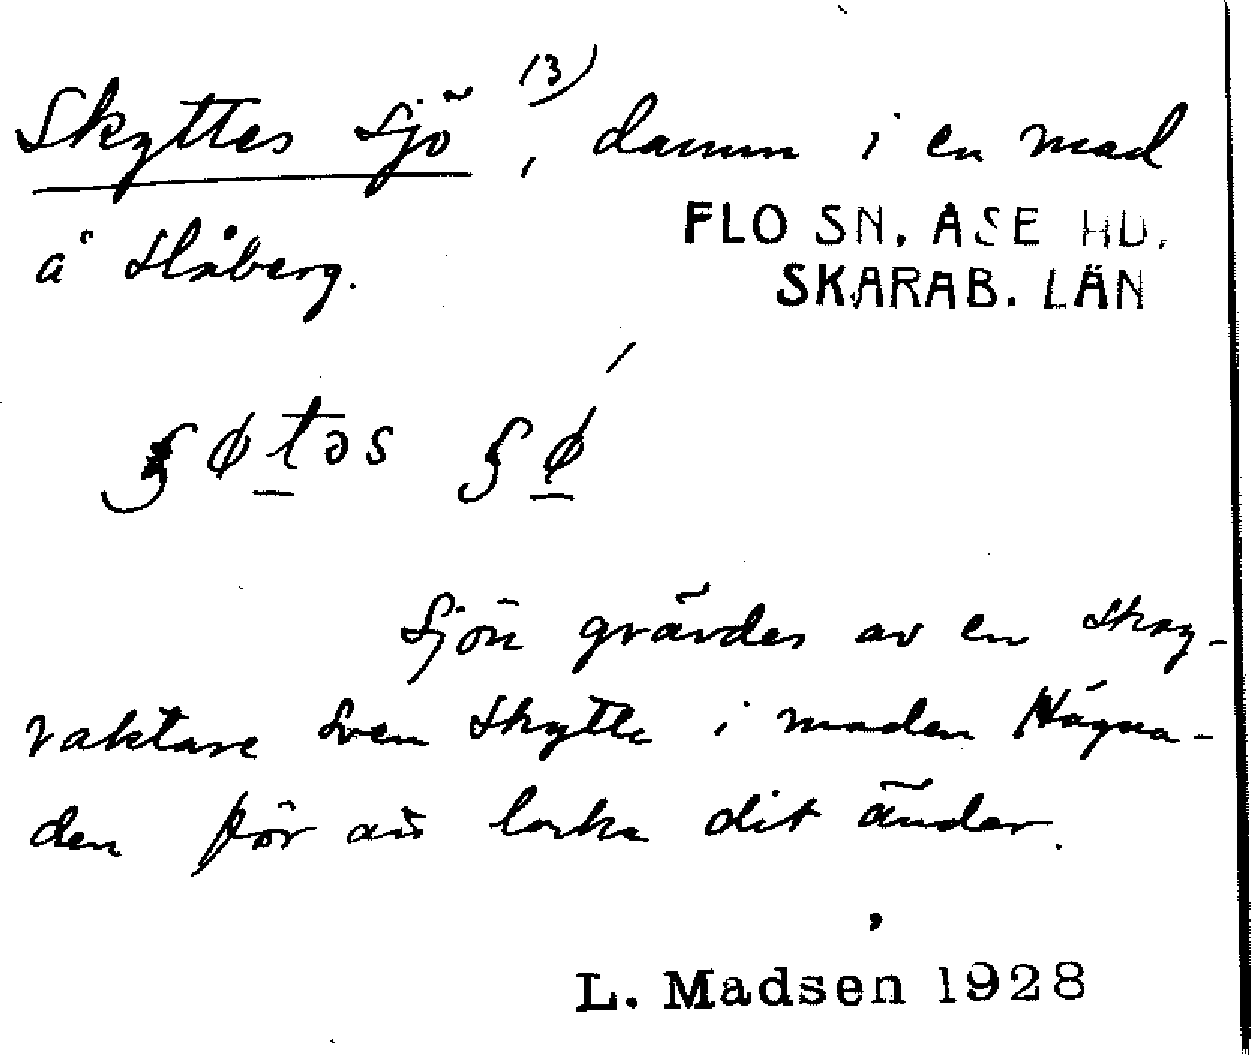 Skyttes sjö 13), damm i en mad
FLO SN. ÅSE HD.
å Slåberg.
SKARAB. LÄN
sjön grävdes av en skog-
vaktare Sven Skytte i maden Hägna-
den för att locka dit änder.
L. Madsen 1928